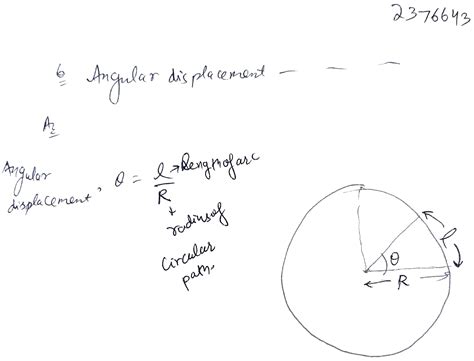 2376643
6 Angular displacement — — —
A:
Angular displacement, θ = l/R → length of arc
radius of
Circular
path.
l
θ
R